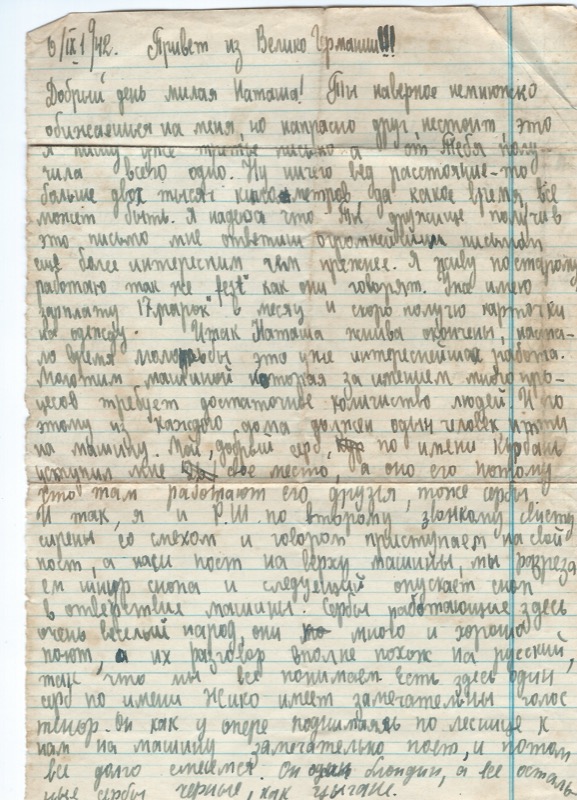 6/IX 1942. Привет из Велико Германии!!!
Добрый день милая Наташа! Ты наверное немножко
обижаешься на меня, но напрасно друг, нестоит, это
я пишу уже третье письмо а от Тебя полу-
чила всего одно. Ну ничего вед расстояние-то
больше двох тысяч километров, да какое время, всё
может быть. Я надеюсь что Ты, дружище получив
это письмо мне ответиш огромнейшим письмом
ещё более интересним чем прежнее. Я живу постарому
работаю так же "fest" как они говорят. Уже имею
зарплату 17 марок в месяц и скоро получю карточки
на одежду. Итак Наташа жнива окончены, наста-
ло время молодьбы это уже интереснейшая работа.
Молотим машиной которая за имением много про-
цесов требует достаточное количиство людей. И по
этому из каждого дома должен один человек идти
на машину. Мой, добрый серб, по имени Курбан
уступил мне свое место, а оно его потому
что там работают его друзья, тоже сербы
И так, я и Р.Ш. по второму звонкому свисту
сирены со смехом и говором приступаем на свой
пост, а наси пост на верху машины, мы розреза
ем шнур снопа и следующий опускает сноп
в отверствие машины. Сербы работающие здесь
очень веселый народ, они много и хорошо
поют, а их разговор вполне похож на русский,
так, что мы все понимаем. Есть здесь один
серб по имени Жико имеет замечательны голос
тенор. Он как у опере поднимаясь по леснице к
нам на машину замечательно поет, и потом
все долго смеемся. Он один блондин, а все осталь
ные сербы черные, как цыгане.